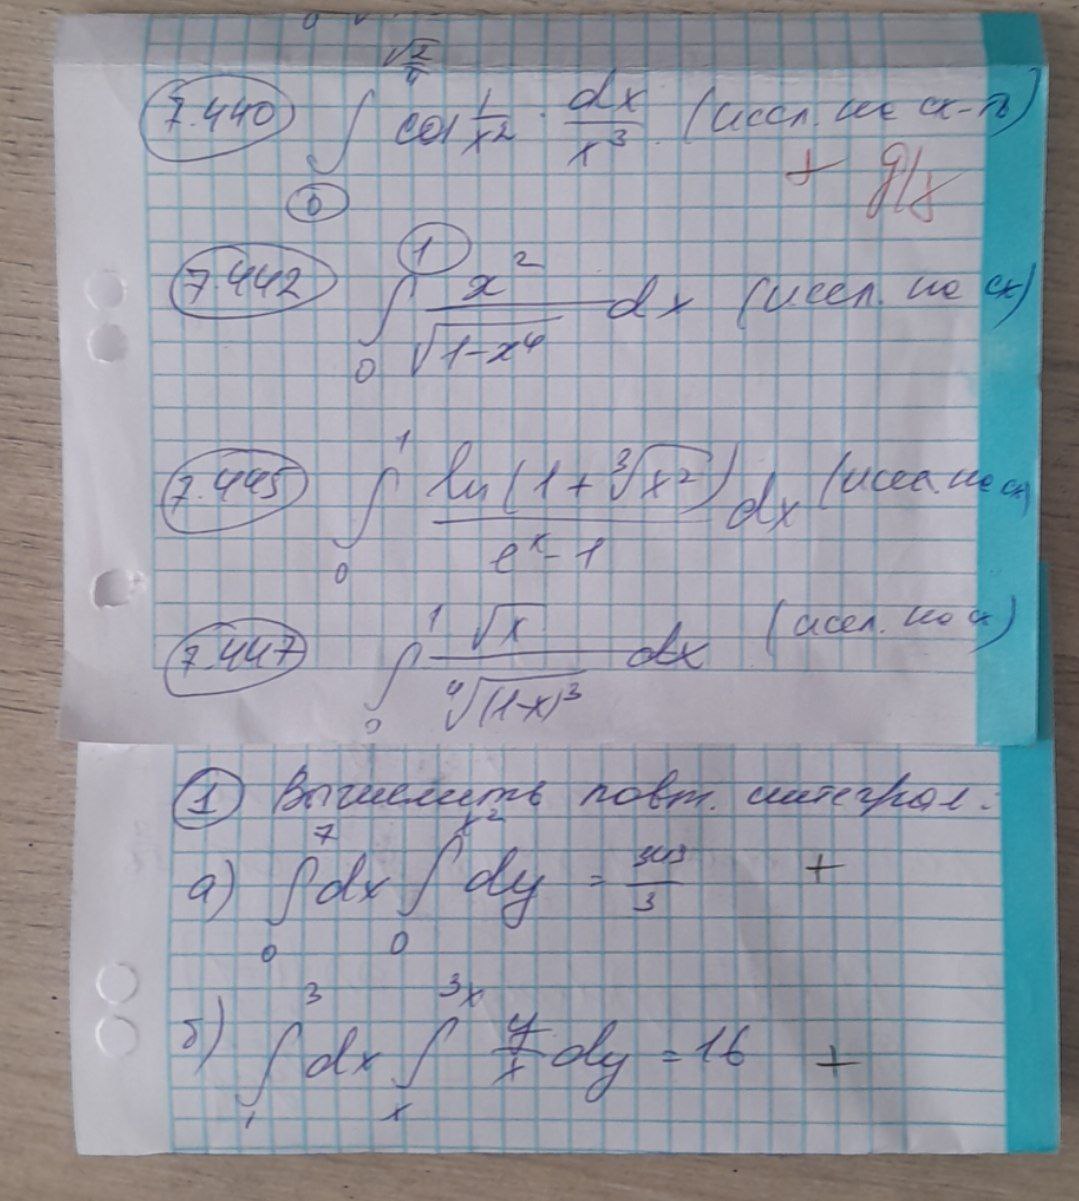 7.440 ∫₀^(√2/4) cos 1/x² · dx/x³ (иссл. на сх-ть)
+ д/з
7.442 ∫₀¹ x²/√(1-x⁴) dx (иссл. на сх)
7.445 ∫₀¹ ln(1+∛x²)/(eˣ-1) dx (иссл. на сх)
7.447 ∫₀¹ √x/⁴√(1-x)³ dx (иссл. на сх)
1 Вычислить повт. интеграл:
а) ∫₀⁷ dx ∫₀^(x²) dy = 343/3 +
б) ∫₁³ dx ∫ₓ^(3x) y/x dy = 16 +